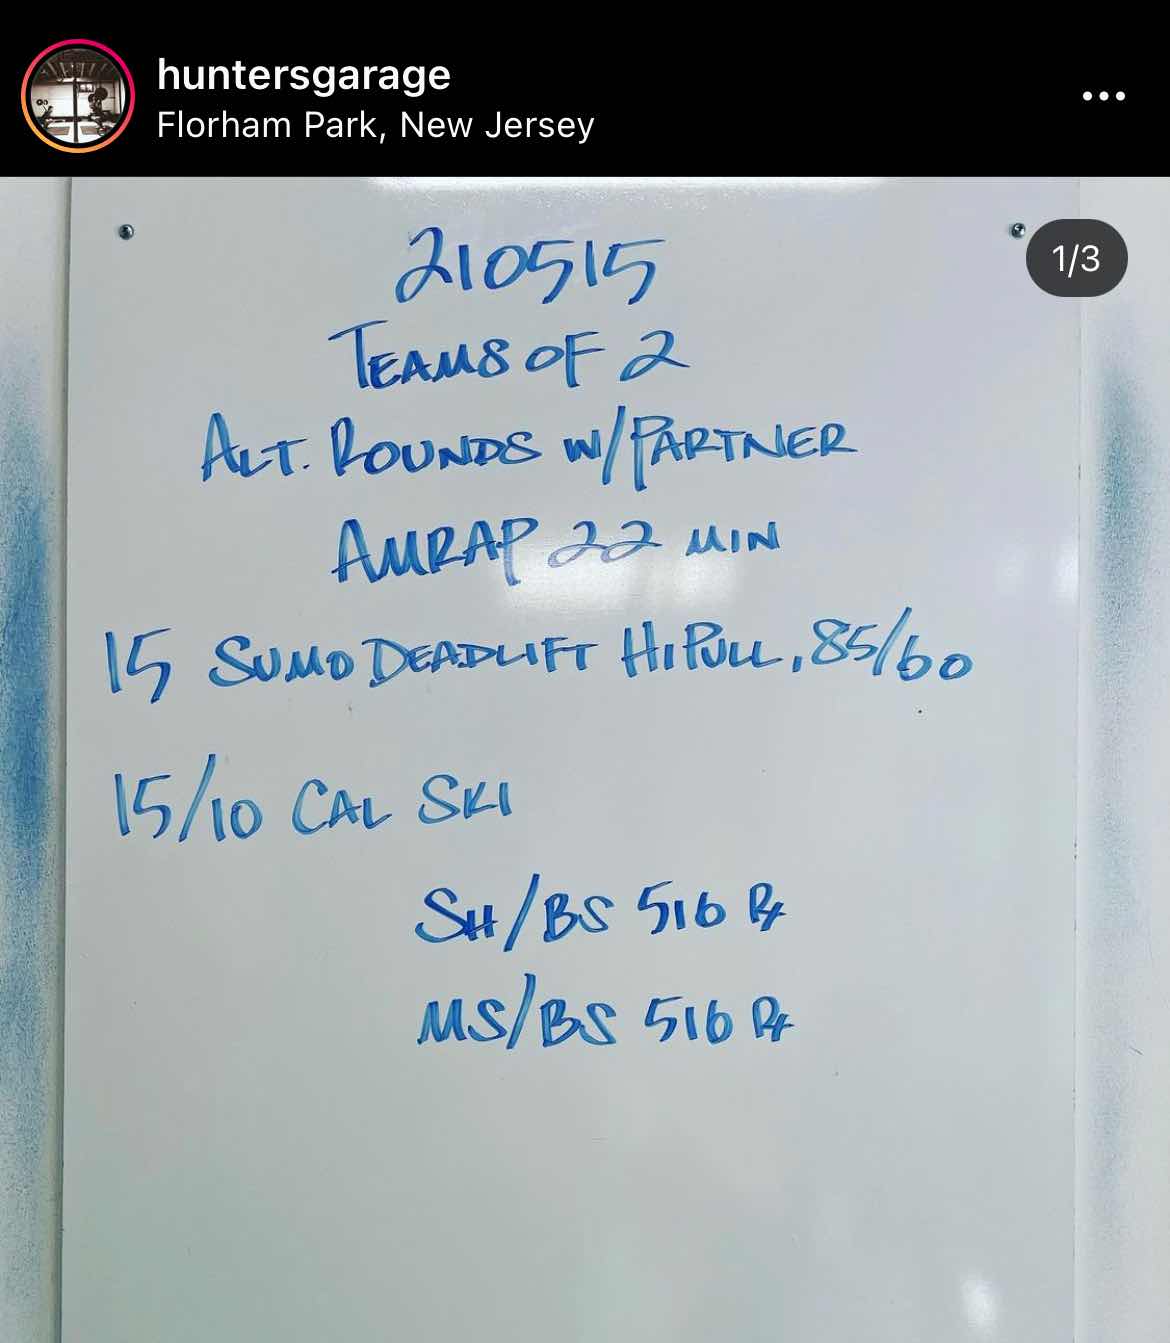 huntersgarage
Florham Park, New Jersey
1/3
210515
TEAMS OF 2
ALT. ROUNDS W/PARTNER
AMRAP 22 MIN
15 SUMO DEADLIFT HI PULL, 85/60
15/10 CAL SKI
SH/BS 516 Rx
MS/BS 516 Rx